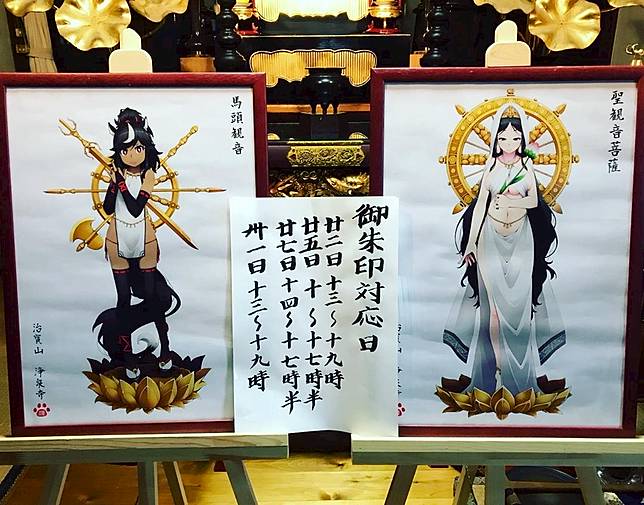 聖観音菩薩
御朱印対応日
廿二日 十三〜十九時
廿五日 十〜十七時半
廿七日 十四〜十七時半
卅一日 十三〜十九時
馬頭観音
治寳山 浄泉寺